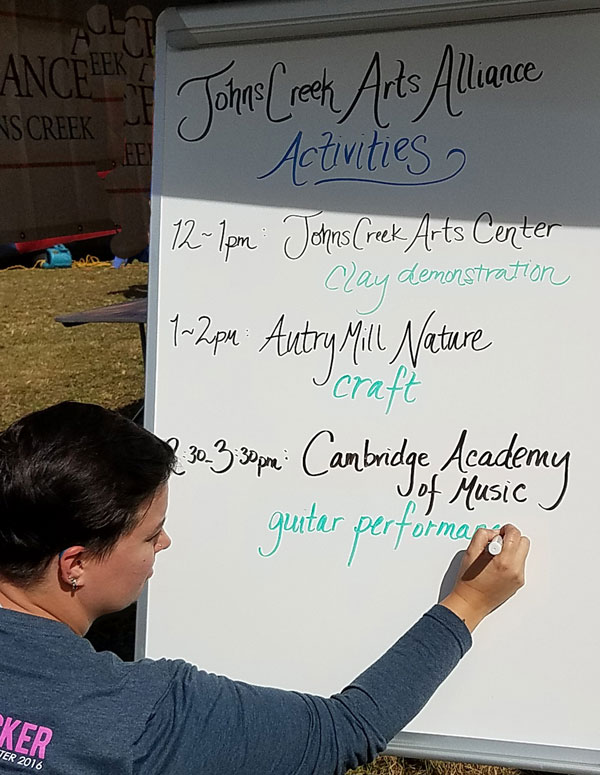 ANCE
NS CREEK
EEK
Johns Creek Arts Alliance
Activities
12~1pm: Johns Creek Arts Center
Clay demonstration
1~2pm: Autry Mill Nature
craft
2:30-3:30pm: Cambridge Academy
of Music
guitar performan
KER
TER 2016